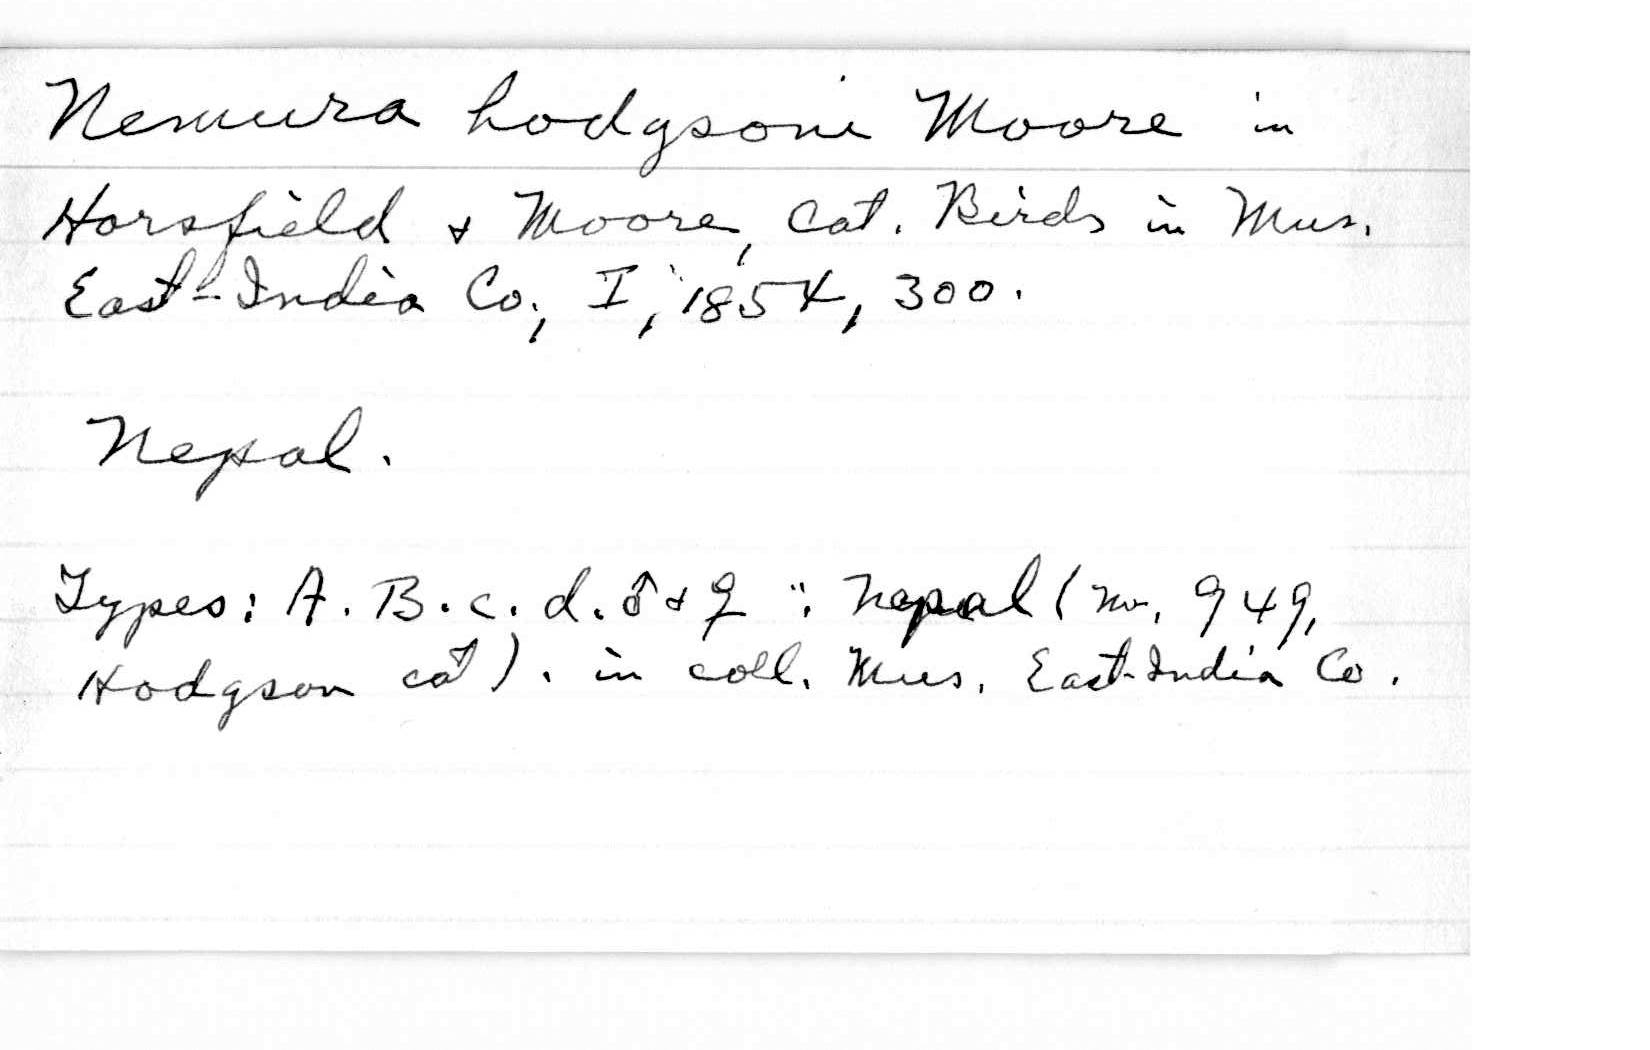 Nemura hodgsoni Moore in
Horsfield & Moore, Cat. Birds in Mus.
East-India Co., I, 1854, 300.
Nepal.
Types: A. B. c. d. ♂ & ♀ ; Nepal (No. 949,
Hodgson cat). in coll. Mus. East-India Co.